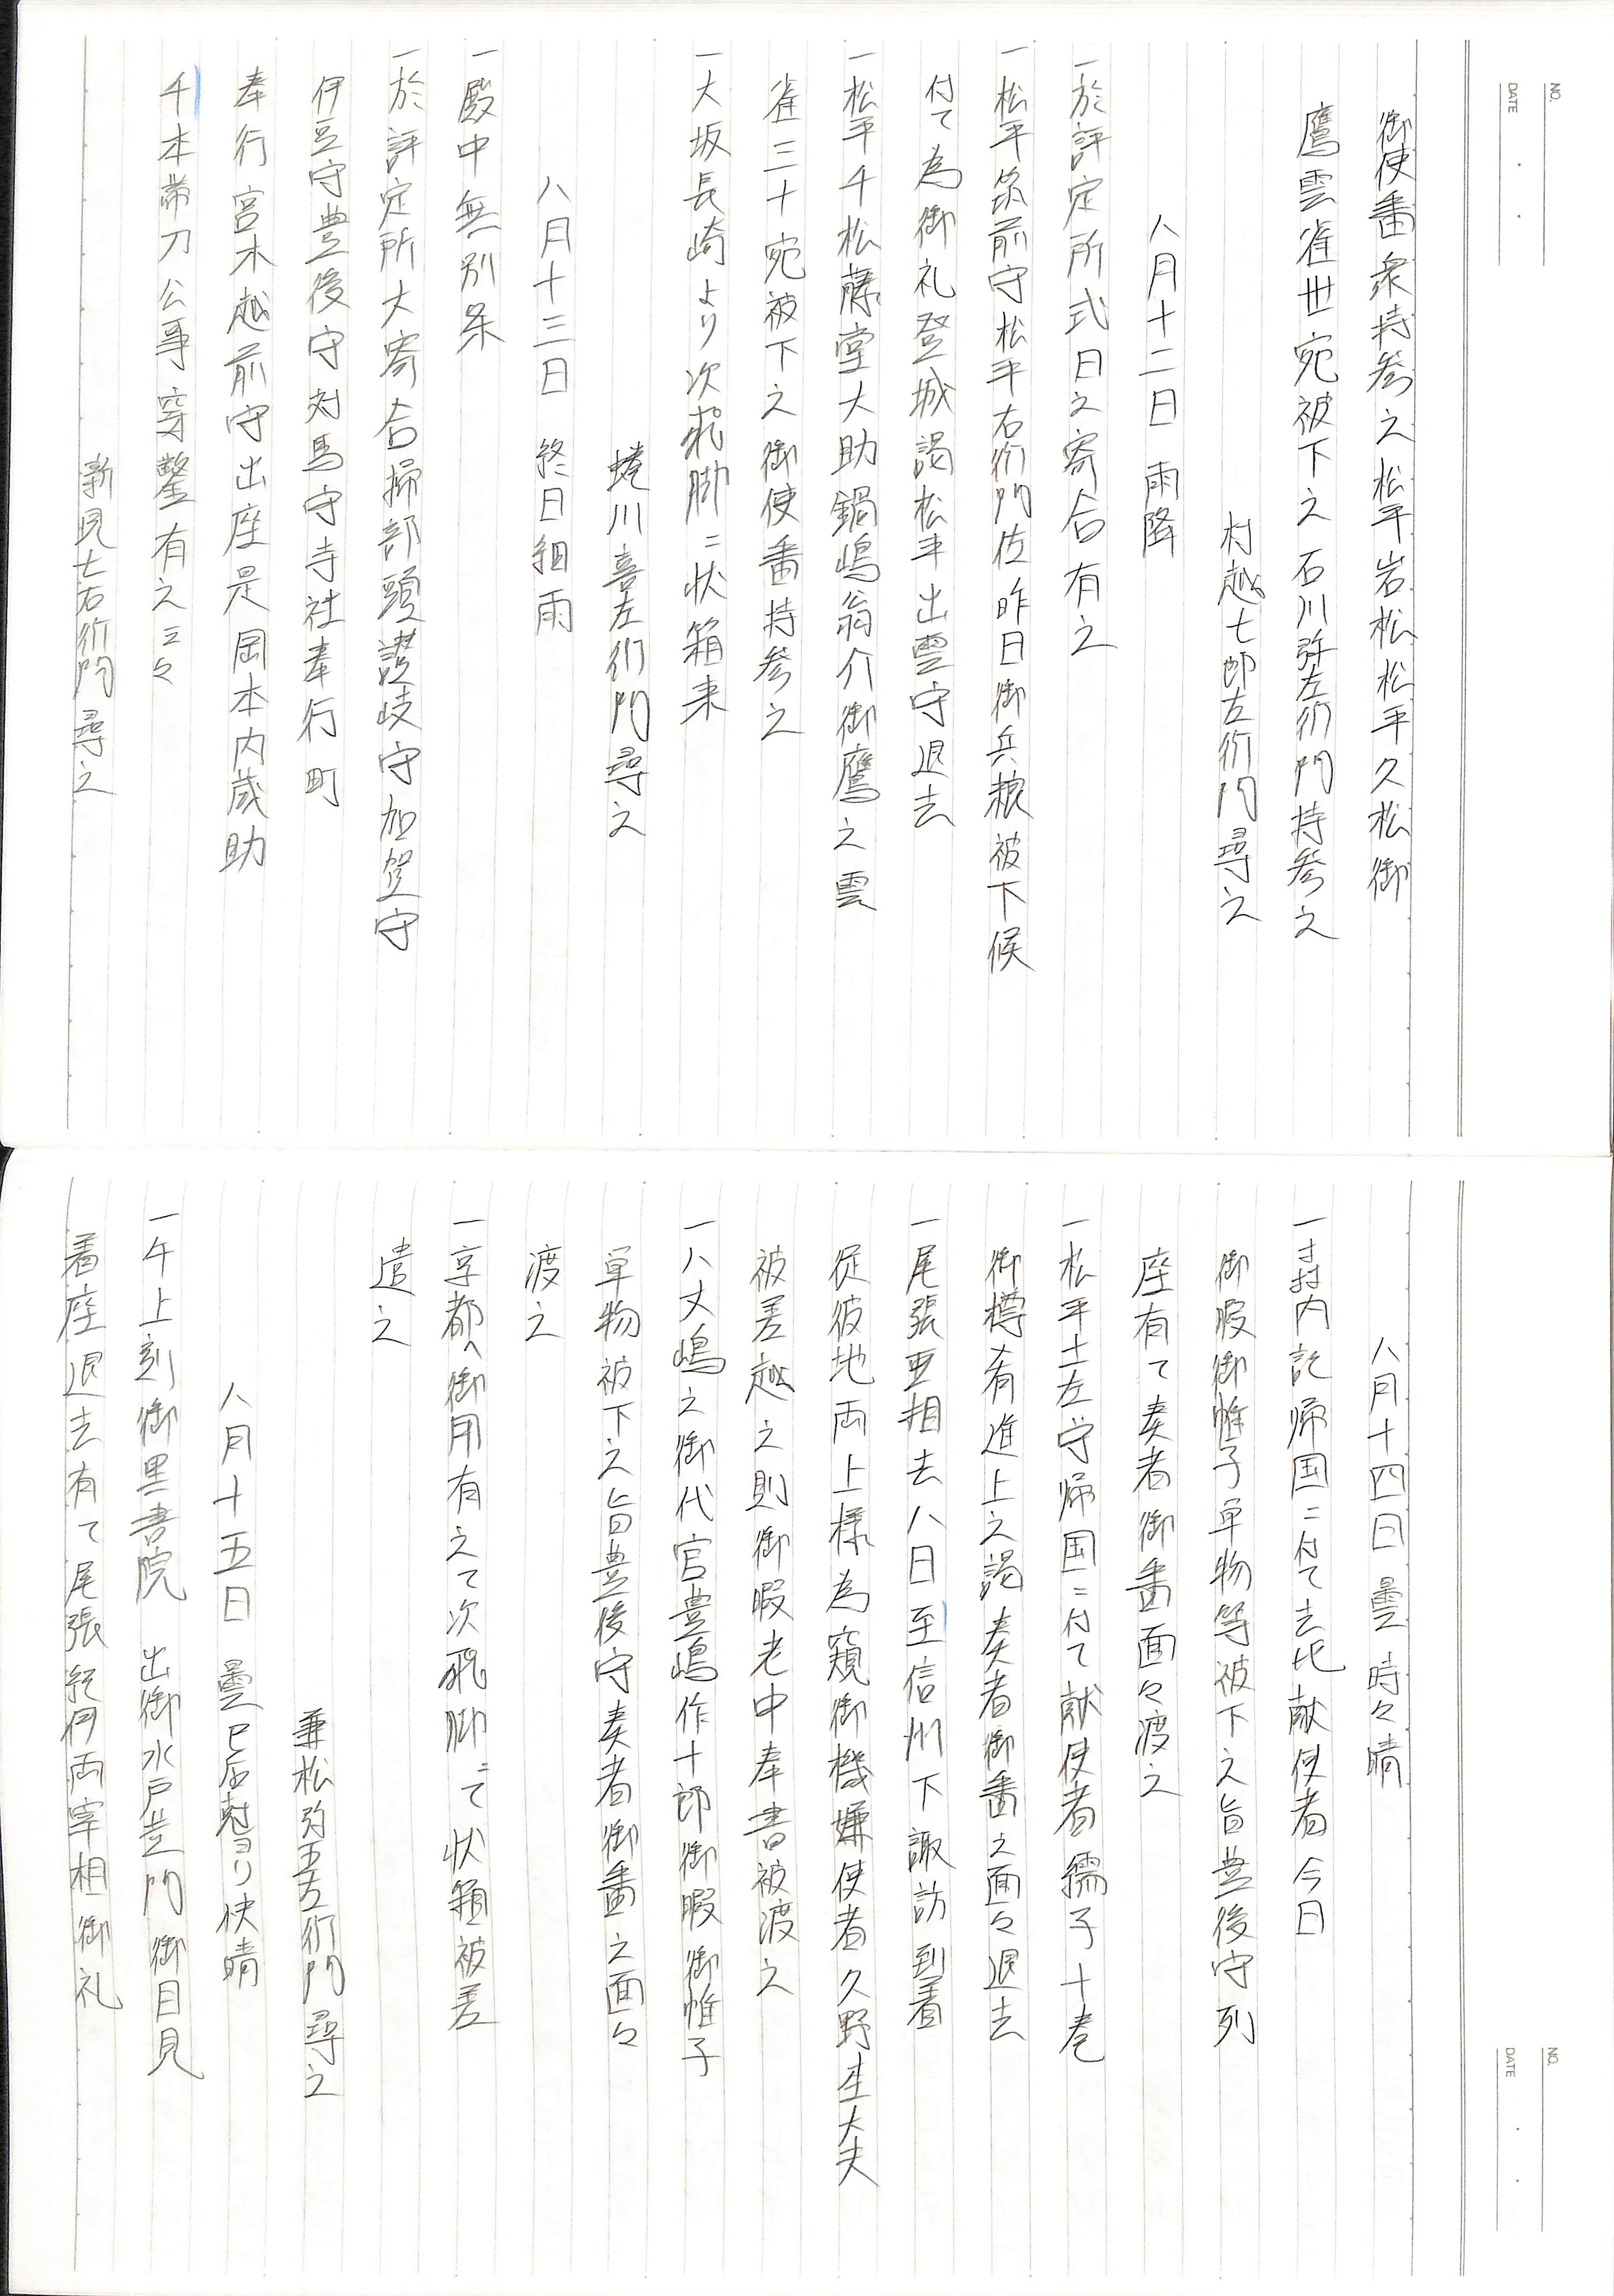 NO.
DATE
御使番衆持参之松平岩松松平久松御
鷹雲雀丗宛被下之石川弥左衛門持参之
村越七郎左衛門尋之
八月十二日 雨降
一於評定所式日之寄合有之
一松平筑前守松平右衛門佐昨日御兵粮被下候
付て為御礼登城謁松平出雲守退去
一松平千松藤堂大助鍋嶋翁介御鷹之雲
雀三十宛被下之御使番持参之
一大坂長崎より次飛脚ニ状箱来
蜷川喜左衛門尋之
八月十三日 終日細雨
一殿中無別条
一於評定所大寄合掃部頭讃岐守加賀守
伊豆守豊後守対馬守寺社奉行町
奉行宮木越前守出座是岡本内蔵助
千本帯刀公事穿鑿有之云々
新見七右衛門尋之
NO.
DATE
八月十四日 曇 時々晴
一森内記帰国ニ付て去比献使者今日
御暇御帷子単物等被下之旨豊後守列
座有て奏者御番面々渡之
一松平土左守帰国ニ付て献使者繻子十巻
御樽肴進上之謁奏者御番之面々退去
一尾張亜相去八日至信州下諏訪到着
従彼地両上様為窺御機嫌使者久野杢大夫
被差越之則御暇老中奉書被渡之
一八丈嶋之御代官豊嶋作十郎御暇御帷子
単物被下之旨豊後守奏者御番之面々
渡之
一京都へ御用有之て次飛脚ニて状箱被差
遣之
兼松弥五左衛門尋之
八月十五日 曇巳后刻ヨリ快晴
一午上刻御黒書院 出御水戸黄門御目見
着座退去有て尾張紀伊両宰相御礼